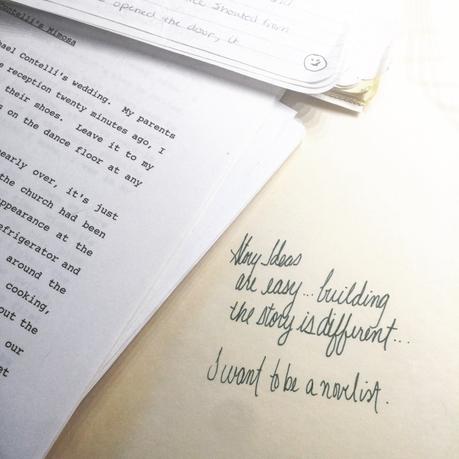 shouted from
opened the door, it
ntelli's Mimosa
ael Contelli's wedding. My parents
e reception twenty minutes ago, I
their shoes. Leave it to my
s on the dance floor at any
early over, it's just
the church had been
appearance at the
efrigerator and
around the
cooking,
out the
our
et
Story Ideas
are easy... building
the story is different...
I want to be a novelist.